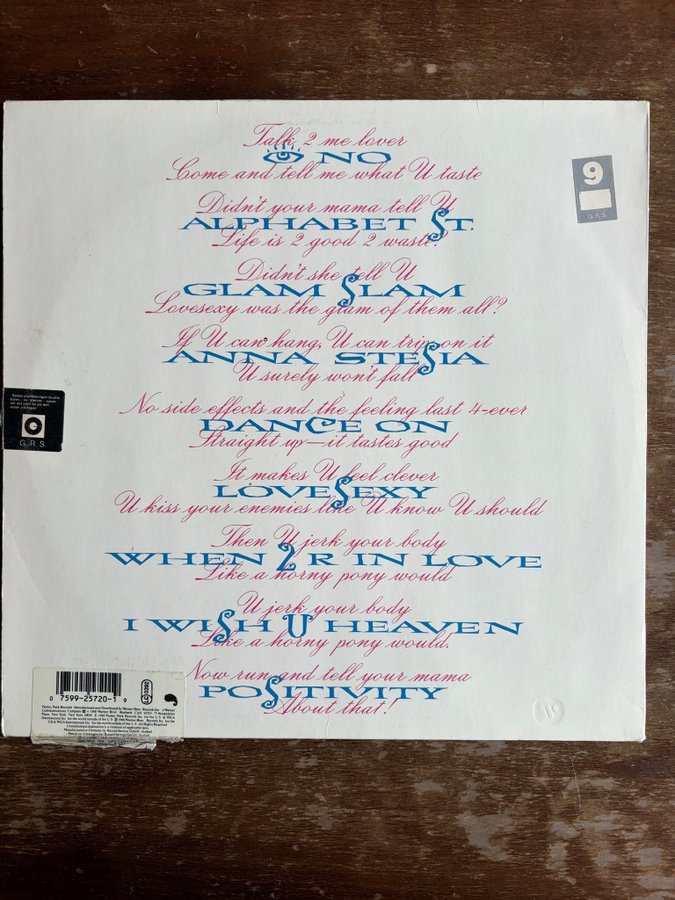 Talk 2 me lover
NO
Come and tell me what U taste
Didn't your mama tell U
ALPHABET ST.
Life is 2 good 2 waste.
Didn't she tell U
GLAM SLAM
Lovesexy was the glam of them all?
If U can hang, U can trip on it
ANNA STESIA
U surely won't fall
No side effects and the feeling last 4-ever
DANCE ON
Straight up—it tastes good
It makes U feel clever
LOVESEXY
U kiss your enemies like U know U should
Then U jerk your body
WHEN 2 R IN LOVE
Like a horny pony would
U jerk your body
I WISH U HEAVEN
Like a horny pony would.
Now run and tell your mama
POSITIVITY
About that!
9
G.R.S.
G.R.S.
0 7599-25720-1 9
19